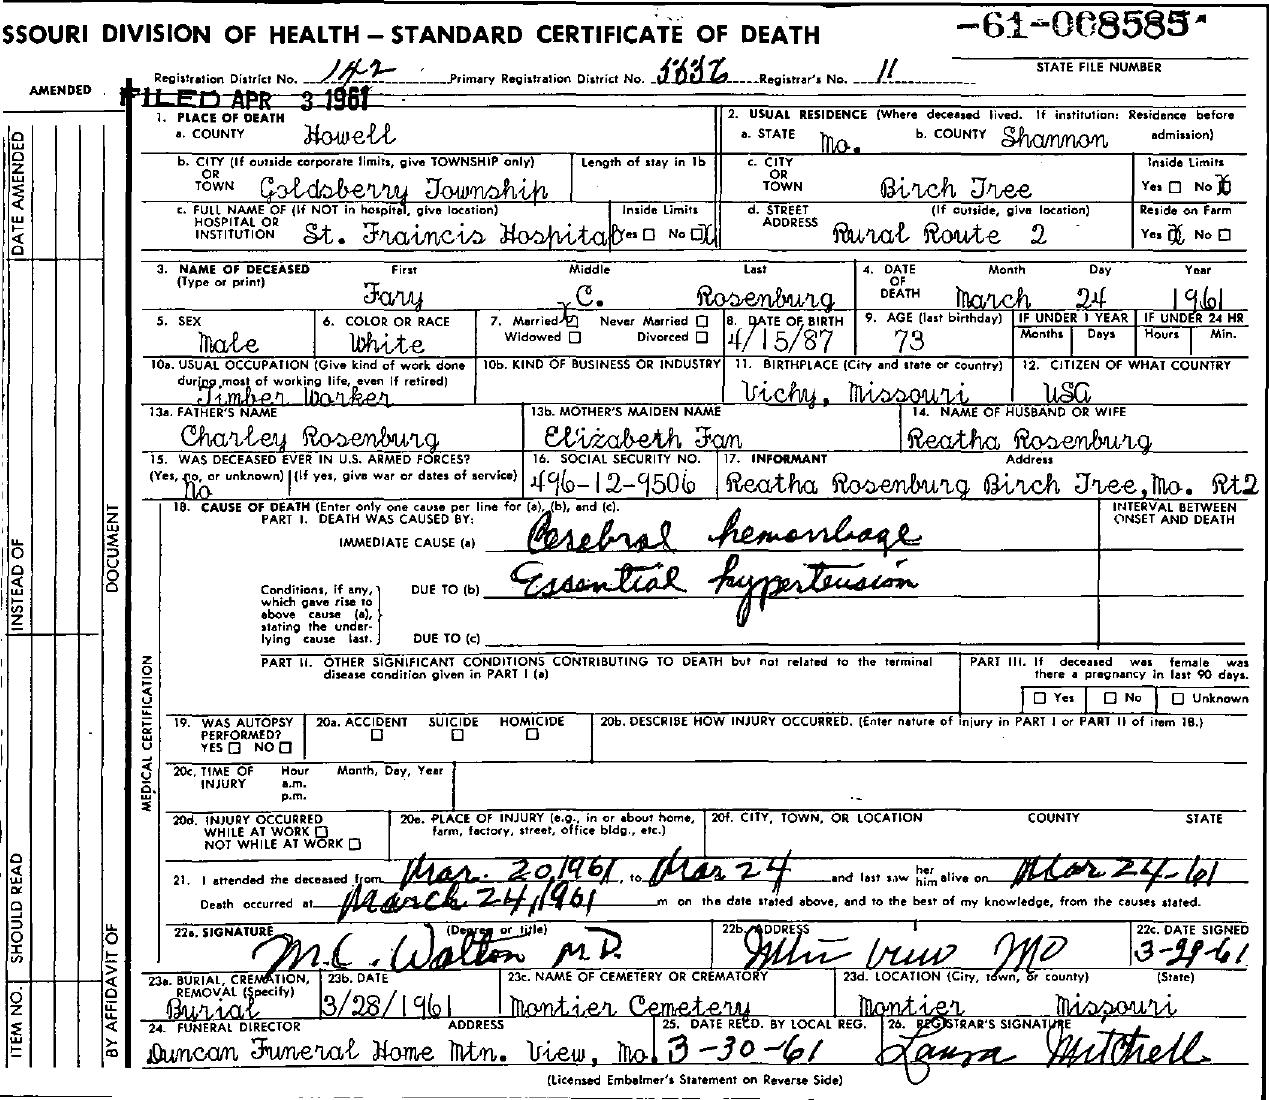 SSOURI DIVISION OF HEALTH – STANDARD CERTIFICATE OF DEATH
-61-008585
STATE FILE NUMBER
Registration District No. 142 Primary Registration District No. 5556 Registrar's No. 11
AMENDED
FILED APR 3 1961
1. PLACE OF DEATH
a. COUNTY Howell
2. USUAL RESIDENCE (Where deceased lived. If institution: Residence before admission)
a. STATE Mo. b. COUNTY Shannon
b. CITY (If outside corporate limits, give TOWNSHIP only) OR TOWN Goldsberry Township
Length of stay in 1b
c. CITY OR TOWN Birch Tree
Inside Limits
Yes □ No ☒
c. FULL NAME OF (If NOT in hospital, give location) HOSPITAL OR INSTITUTION St. Fraincis Hospital
Inside Limits
Yes □ No ☒
d. STREET ADDRESS (If outside, give location) Rural Route 2
Reside on Farm
Yes ☒ No □
3. NAME OF DECEASED (Type or print)
First Middle Last
Fary C. Rosenburg
4. DATE OF DEATH Month Day Year
March 24 1961
5. SEX
Male
6. COLOR OR RACE
White
7. Married ☒ Never Married □
Widowed □ Divorced □
8. DATE OF BIRTH
4/15/87
9. AGE (last birthday)
73
IF UNDER 1 YEAR
Months Days
IF UNDER 24 HR
Hours Min.
10a. USUAL OCCUPATION (Give kind of work done during most of working life, even if retired)
Timber Worker
10b. KIND OF BUSINESS OR INDUSTRY
11. BIRTHPLACE (City and state or country)
Vichy, Missouri
12. CITIZEN OF WHAT COUNTRY
USA
13a. FATHER'S NAME
Charley Rosenburg
13b. MOTHER'S MAIDEN NAME
Elizabeth Fan
14. NAME OF HUSBAND OR WIFE
Reatha Rosenburg
15. WAS DECEASED EVER IN U.S. ARMED FORCES?
(Yes, no, or unknown) (If yes, give war or dates of service)
no
16. SOCIAL SECURITY NO.
496-12-9506
17. INFORMANT Address
Reatha Rosenburg Birch Tree, Mo. Rt2
18. CAUSE OF DEATH (Enter only one cause per line for (a), (b), and (c).
PART I. DEATH WAS CAUSED BY:
INTERVAL BETWEEN ONSET AND DEATH
IMMEDIATE CAUSE (a) Cerebral hemorrhage
Conditions, if any, which gave rise to above cause (a), stating the underlying cause last.
DUE TO (b) Essential hypertension
DUE TO (c)
PART II. OTHER SIGNIFICANT CONDITIONS CONTRIBUTING TO DEATH but not related to the terminal disease condition given in PART I (a)
PART III. If deceased was female was there a pregnancy in last 90 days.
□ Yes □ No □ Unknown
19. WAS AUTOPSY PERFORMED?
YES □ NO □
20a. ACCIDENT SUICIDE HOMICIDE
□ □ □
20b. DESCRIBE HOW INJURY OCCURRED. (Enter nature of injury in PART I or PART II of item 18.)
20c. TIME OF INJURY Hour a.m. p.m. Month, Day, Year
20d. INJURY OCCURRED
WHILE AT WORK □
NOT WHILE AT WORK □
20e. PLACE OF INJURY (e.g., in or about home, farm, factory, street, office bldg., etc.)
20f. CITY, TOWN, OR LOCATION COUNTY STATE
21. I attended the deceased from Mar. 20, 1961, to Mar 24 and last saw her him alive on Mar 24-61
Death occurred at March 24, 1961 m on the date stated above, and to the best of my knowledge, from the causes stated.
22a. SIGNATURE (Degree or title)
M.C. Walton M.D.
22b. ADDRESS
Mtn View Mo
22c. DATE SIGNED
3-29-61
23a. BURIAL, CREMATION, REMOVAL (Specify)
Burial
23b. DATE
3/28/1961
23c. NAME OF CEMETERY OR CREMATORY
Montier Cemetery
23d. LOCATION (City, town, or county) (State)
Montier Missouri
24. FUNERAL DIRECTOR ADDRESS
Duncan Funeral Home Mtn. View, Mo.
25. DATE RECD. BY LOCAL REG.
3-30-61
26. REGISTRAR'S SIGNATURE
Laura Mitchell
(Licensed Embalmer's Statement on Reverse Side)
DATE AMENDED
INSTEAD OF
DOCUMENT
MEDICAL CERTIFICATION
SHOULD READ
ITEM NO.
BY AFFIDAVIT OF